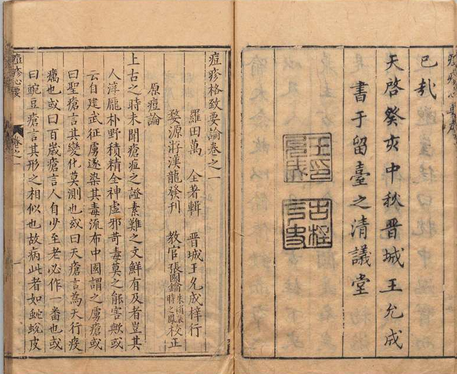 已哉
天啓癸亥中秋晋城王允成
書于留臺之清議堂
痘疹格致要論卷之一
羅田萬全著輯 晋城王允成梓行
婺源游漢龍發刊 教官張鶴鳴校正
原痘論
上古之時未聞痘瘡之證素難之文鮮有及者豈其
人淳龎朴野積精全神虛邪苛毒莫之能害歟或
云自建武征虜遂染其毒流布中國謂之虜瘡或
曰聖瘡言其變化莫測也或曰天瘡言爲天行疫
癘也或曰百歲瘡言人自少至老必作一番也或
曰豌豆瘡言其形之相似也故病此者如蛇蛻皮